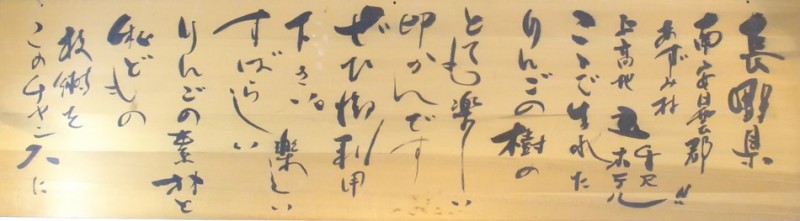 長野県
南安曇郡
あずみ村
上高地
ホテル
ここで生れた
りんごの樹の
とても楽しい
印かんです
ぜひ御利用
下さい 楽しい
すばらしい
りんごの素材と
私どもの
技術を
このチャンスに